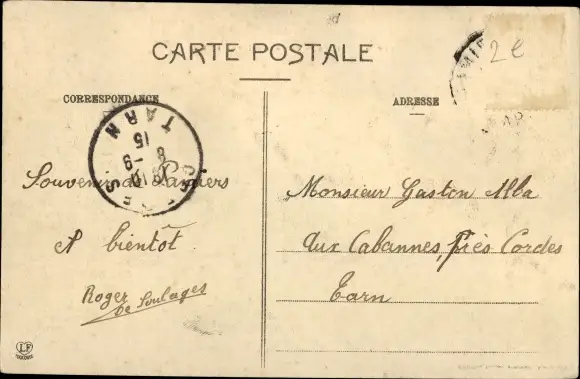 CARTE POSTALE
2€
CORRESPONDANCE
ADRESSE
CORDES
TARN
Souvenir de Pamiers
A bientôt
Roger
de Soulages
Monsieur Gaston Alba
Aux Cabannes, près Cordes
Tarn
LF